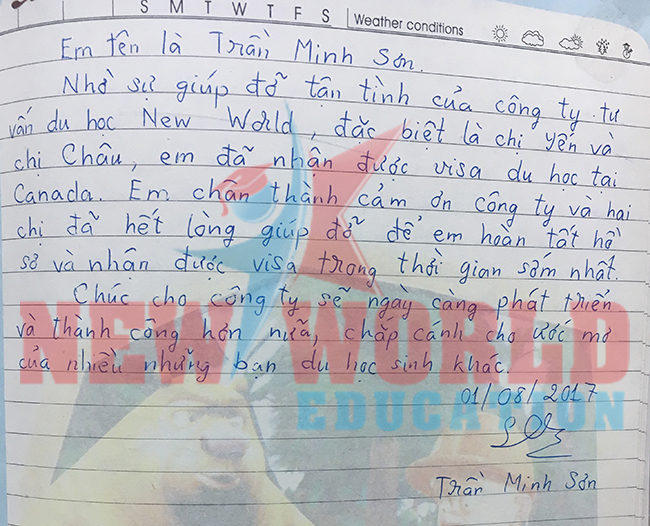 S M T W T F S Weather conditions
Em tên là Trần Minh Sơn.
Nhờ sự giúp đỡ tân tình của công ty tư
vấn du học New World, đặc biệt là chị yến và
chị Châu, em đã nhận được visa du học tại
Canada. Em chân thành cảm ơn công ty và hai
chị đã hết lòng giúp đỡ để em hoàn tất hồ
sơ và nhận được visa trong thời gian sớm nhất.
Chúc cho công ty sẽ ngày càng phát triển
và thành công hơn nữa, chắp cánh cho ước mơ
của nhiều những bạn du học sinh khác.
NEW WORLD
EDUCATION
01/08/2017
Trần Minh Sơn